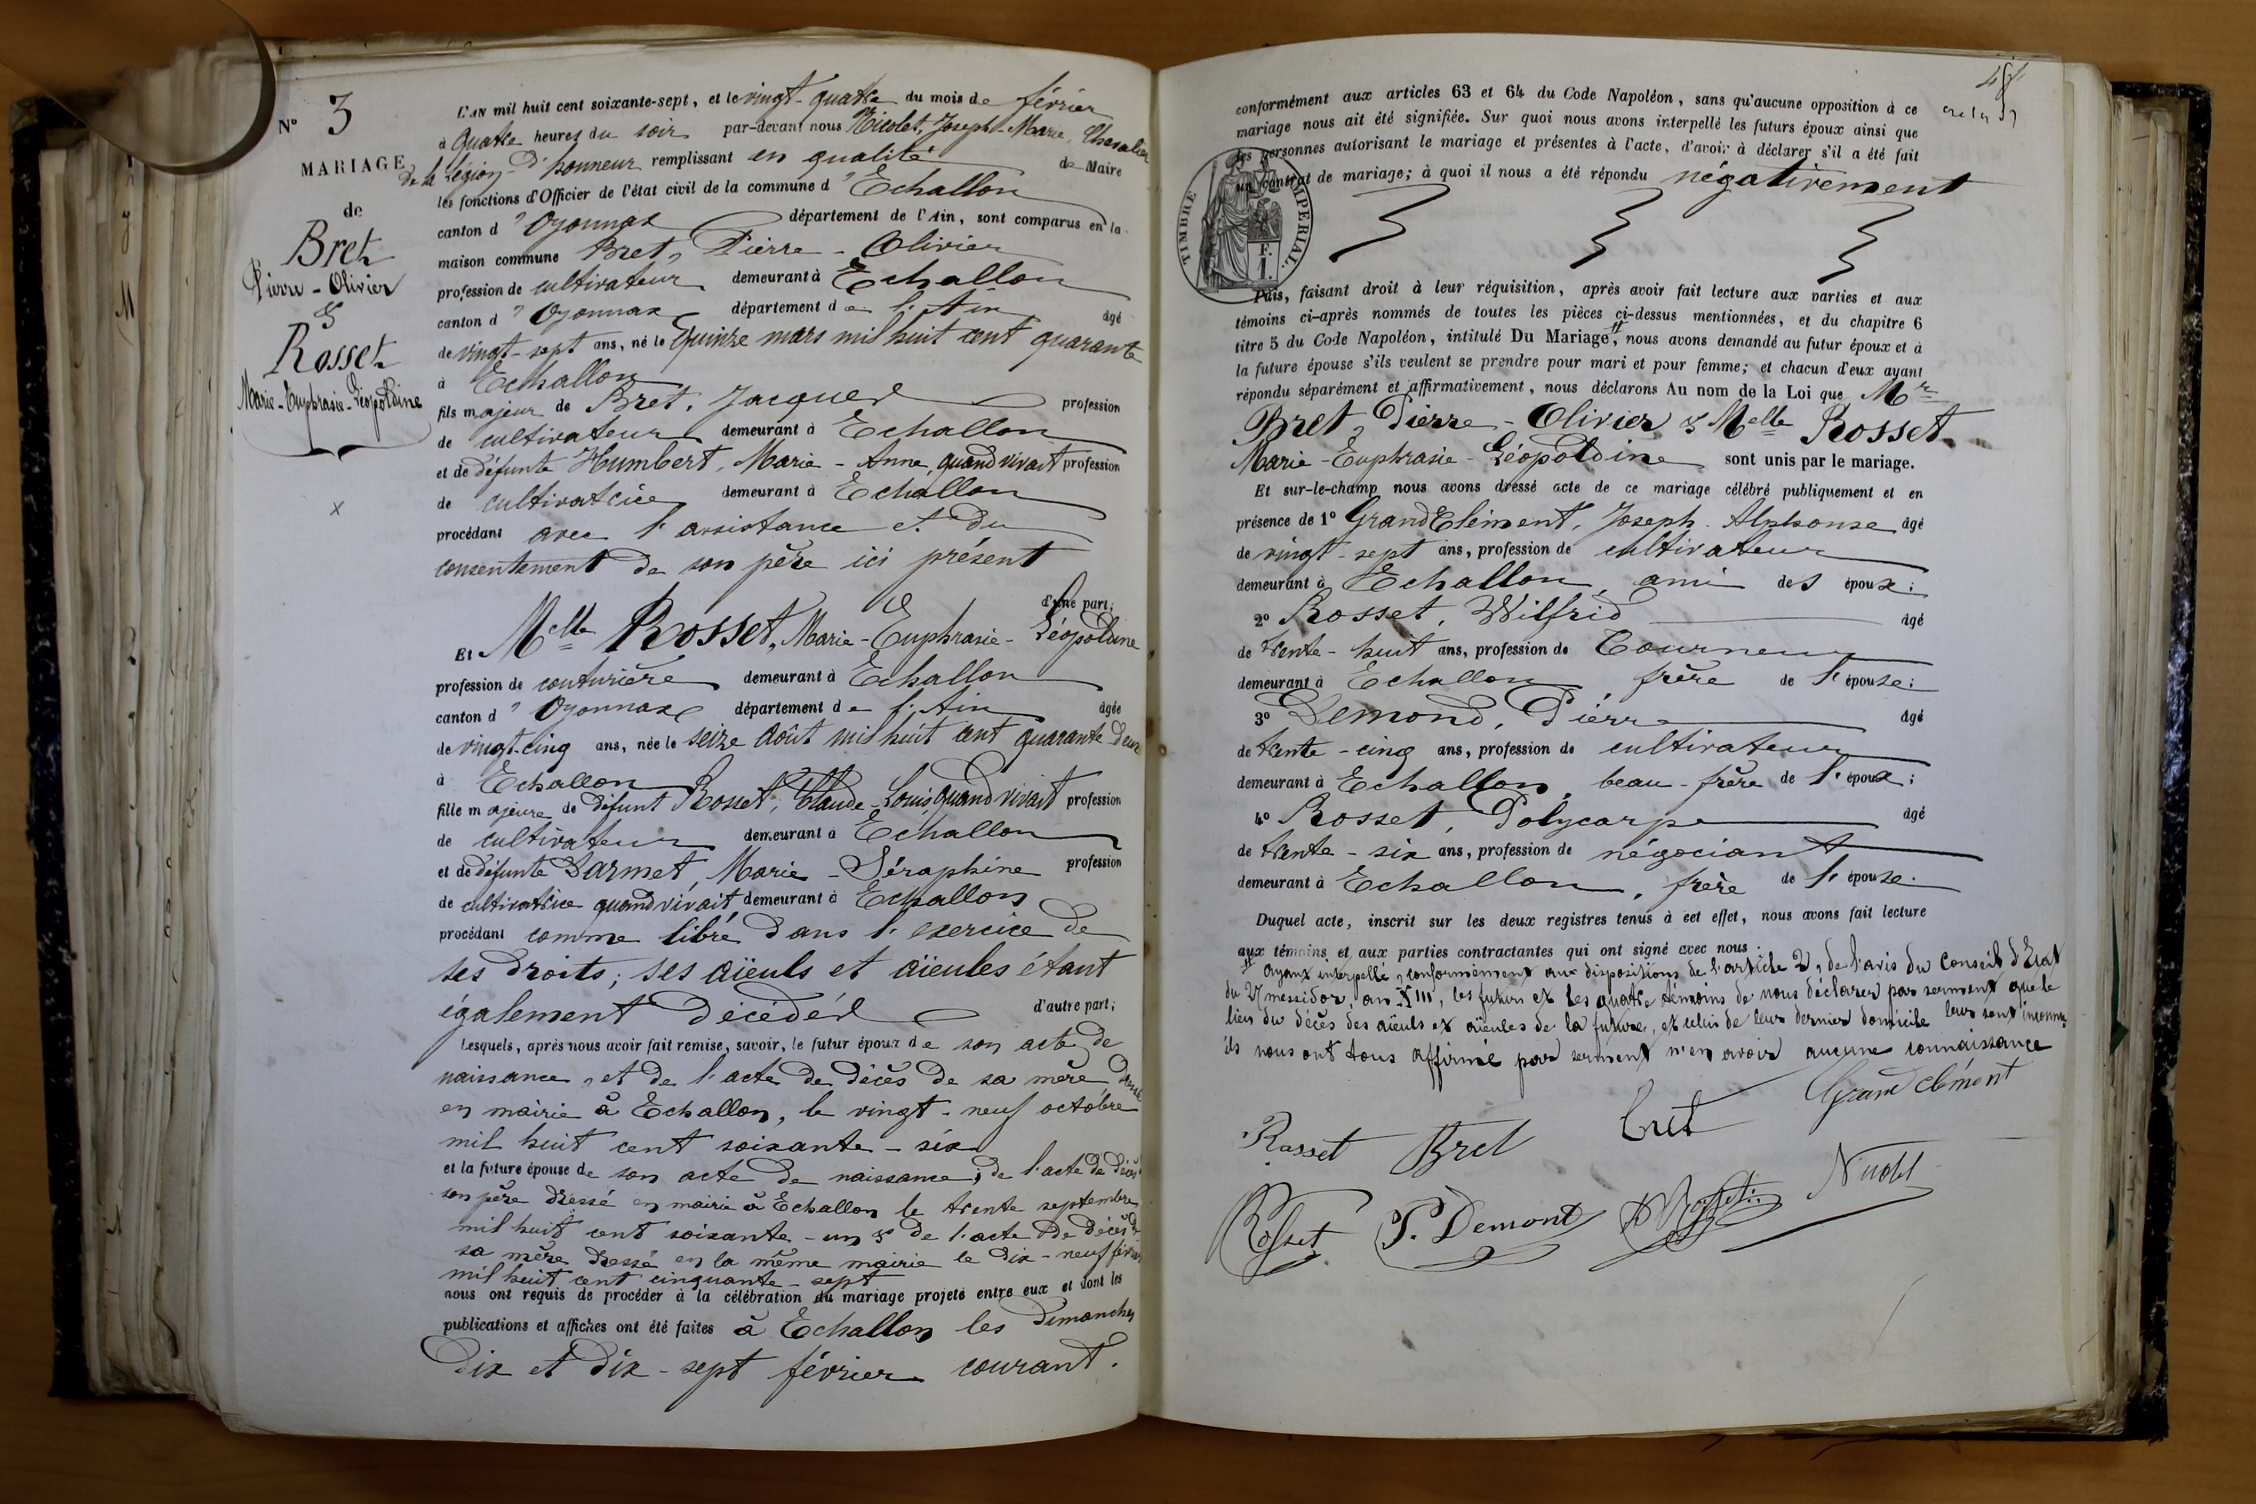 N° 3
MARIAGE
de
Bret
Pierre-Olivier
&
Rosset
Marie-Euphrasie-Léopoldine
L'AN mil huit cent soixante-sept, et le vingt-quatre du mois de février
à quatre heures du soir par-devant nous Nicolet, Joseph-Marie, Chevalier
de la légion d'honneur remplissant en qualité de Maire
les fonctions d'Officier de l'état civil de la commune d'Echallon
canton d'Oyonnax département de l'Ain, sont comparus en la
maison commune Bret, Pierre-Olivier
profession de cultivateur demeurant à Echallon
canton d'Oyonnax département de l'Ain âgé
de vingt-sept ans, né le quinze mars mil huit cent quarante
à Echallon
fils majeur de Bret, Jacques profession
de cultivateur demeurant à Echallon
et de défunte Humbert, Marie-Anne, quand vivait profession
de cultivatrice demeurant à Echallon
procédant avec l'assistance et du
consentement de son père ici présent
d'une part;
Et Melle Rosset, Marie-Euphrasie-Léopoldine
profession de couturière demeurant à Echallon
canton d'Oyonnax département de l'Ain âgée
de vingt-cinq ans, née le seize août mil huit cent quarante-deux
à Echallon
fille majeure de défunt Rosset, Claude-Louis, quand vivait profession
de cultivateur demeurant à Echallon
et de défunte Darmet, Marie-Séraphine profession
de cultivatrice quand vivait demeurant à Echallon
procédant comme libre dans l'exercice de
ses droits; ses aïeuls et aïeules étant
également décédés d'autre part;
Lesquels, après nous avoir fait remise, savoir, le futur époux de son acte de
naissance, et de l'acte de décès de sa mère dressé
en mairie à Echallon, le vingt-neuf octobre
mil huit cent soixante-six
et la future épouse de son acte de naissance, de l'acte de décès
son père dressé en mairie à Echallon le trente septembre
mil huit cent soixante-un & de l'acte de décès de
sa mère dressé en la même mairie le dix-neuf février
mil huit cent cinquante-sept
nous ont requis de procéder à la célébration du mariage projeté entre eux et dont les
publications et affiches ont été faites à Echallon les dimanches
dix et dix-sept février courant.
conformément aux articles 63 et 64 du Code Napoléon, sans qu'aucune opposition à ce
mariage nous ait été signifiée. Sur quoi nous avons interpellé les futurs époux ainsi que
les personnes autorisant le mariage et présentes à l'acte, d'avoir à déclarer s'il a été fait
un contrat de mariage; à quoi il nous a été répondu négativement
TIMBRE IMPERIAL.
F.
1.
Puis, faisant droit à leur réquisition, après avoir fait lecture aux parties et aux
témoins ci-après nommés de toutes les pièces ci-dessus mentionnées, et du chapitre 6
titre 5 du Code Napoléon, intitulé Du Mariage, nous avons demandé au futur époux et à
la future épouse s'ils veulent se prendre pour mari et pour femme; et chacun d'eux ayant
répondu séparément et affirmativement, nous déclarons Au nom de la Loi que Mr
Bret, Pierre-Olivier & Melle Rosset
Marie-Euphrasie-Léopoldine sont unis par le mariage.
Et sur-le-champ nous avons dressé acte de ce mariage célébré publiquement et en
présence de 1° GrandClément, Joseph-Alphonse âgé
de vingt-sept ans, profession de cultivateur
demeurant à Echallon, ami des époux;
2° Rosset, Wilfrid âgé
de trente-huit ans, profession de Tourneur
demeurant à Echallon frère de l'épouse;
3° Demond, Pierre âgé
de trente-cinq ans, profession de cultivateur
demeurant à Echallon, beau-frère de l'époux;
4° Rosset, Polycarpe âgé
de trente-six ans, profession de négociant
demeurant à Echallon, frère de l'épouse.
Duquel acte, inscrit sur les deux registres tenus à cet effet, nous avons fait lecture
aux témoins et aux parties contractantes qui ont signé avec nous.
# ayant interpellé, conformément aux dispositions de l'article 2, de l'avis du Conseil d'Etat
du 27 messidor an XIII, les futurs et les quatre témoins de nous déclarer par serment que le
lieu du décès des aïeuls et aïeules de la future, et celui de leur dernier domicile leur sont inconnus
ils nous ont tous affirmé par serment n'en avoir aucune connaissance
Grandclément
Rosset Bret Bret
Rosset P. Demont